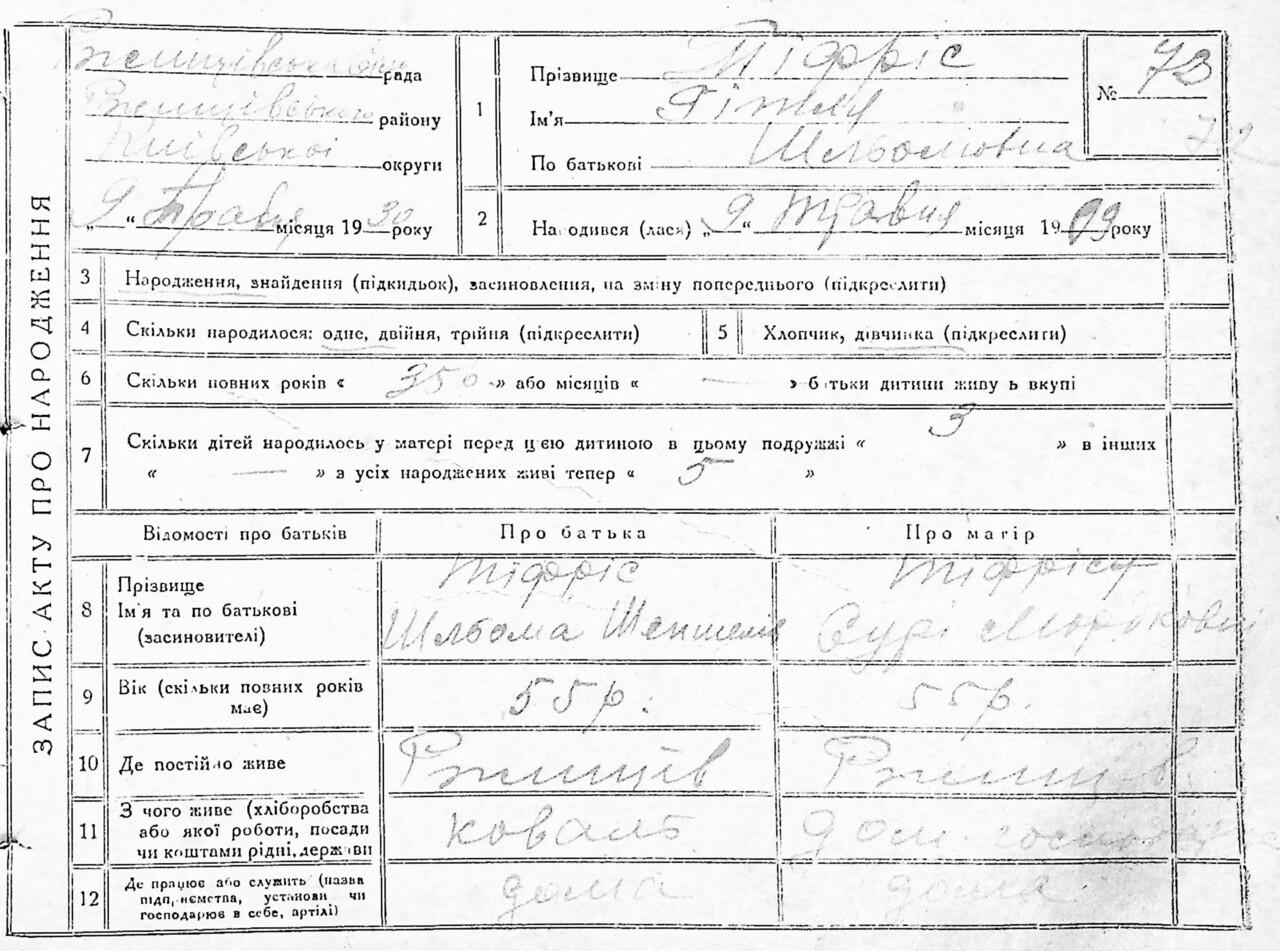 ЗАПИС АКТУ ПРО НАРОДЖЕННЯ
Ржищівська рада
Ржищівського району
Київської округи
„ 9 “ Травня місяця 1930 року
1 Прізвище Тіфріс
Ім'я
По батькові Шльомовна
№ 73
72
2 Народився (лася) „ 9 “ Травня місяця 1909 року
3 Народження, знайдення (підкидьок), засиновлення, на зміну попереднього (підкреслити)
4 Скільки народилося: одне, двійня, трійня (підкреслити)
5 Хлопчик, дівчинка (підкреслити)
6 Скільки повних років « 35 р. » або місяців « — » батьки дитини живуть вкупі
7 Скільки дітей народилось у матері перед цією дитиною в цьому подружжі « 3 » в інших
« — » з усіх народжених живі тепер « 5 »
Відомості про батьків Про батька Про матір
8 Прізвище
Ім'я та по батькові
(засиновителі)
Тіфріс
Шльома
Тіфрісу
9 Вік (скільки повних років
має)
55 р.
55 р.
10 Де постійно живе Ржищів Ржищів.
11 З чого живе (хліборобства
або якої роботи, посади
чи коштами рідні, держави
коваль
дом.
12 Де працює або служить (назва
підприємства, установи чи
господарює в себе, артілі)
дома
дома